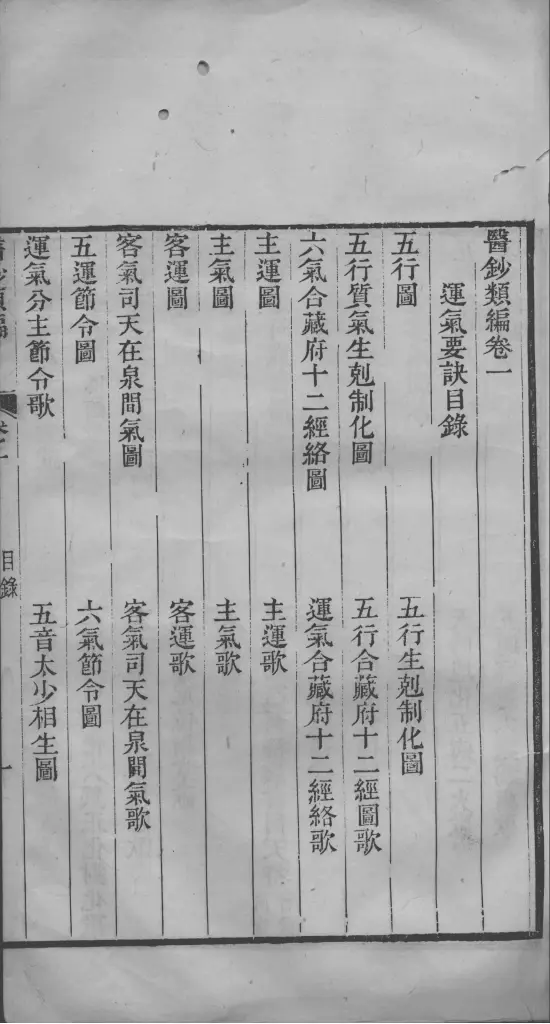 醫鈔類編卷一
運氣要訣目錄
五行圖
五行生剋制化圖
五行質氣生剋制化圖
五行合藏府十二經圖歌
六氣合藏府十二經絡圖
運氣合藏府十二經絡歌
主運圖
主運歌
主氣圖
主氣歌
客運圖
客運歌
客氣司天在泉間氣圖
客氣司天在泉間氣歌
五運節令圖
六氣節令圖
運氣分主節令歌
五音太少相生圖
目錄
一